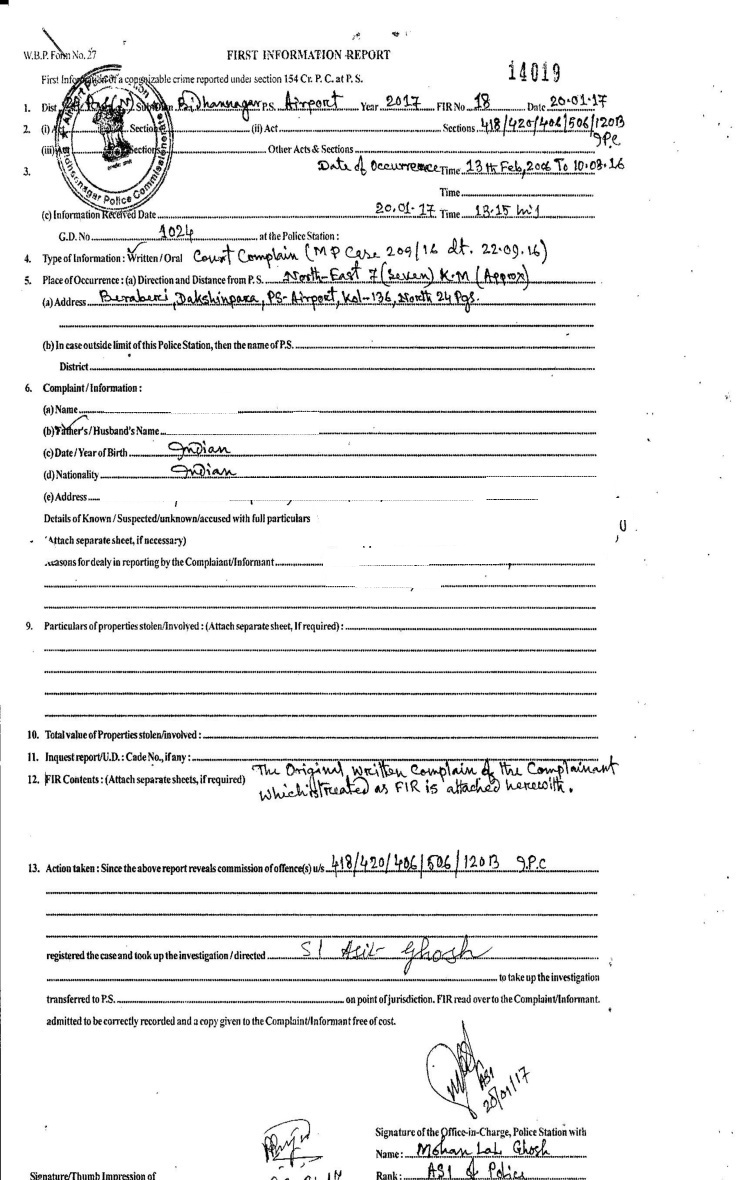 W.B.P. Form No. 27
FIRST INFORMATION REPORT
14019
First Information of a cognizable crime reported under section 154 Cr. P. C. at P. S.
1. Dist Bidhannagar P.S. Airport Year 2017 FIR No 18 Date 20.01.17
2. (i) Section (ii) Act Sections 418/420/406/506/120B
IPC
(iii) Sections Other Acts & Sections
3. Date of Occurrence Time 13th Feb, 2006 To 10.08.16
Time
(c) Information Received Date 20.01.17 Time 13.15
G.D. No 1024 at the Police Station :
4. Type of Information : Written / Oral Court Complain (MP Case 209/16 dt. 22.09.16)
5. Place of Occurrence : (a) Direction and Distance from P. S. North-East 7 (Seven) K.M (Approx)
(a) Address Beraberi, Dakshinpara, PS-Airport, Kol-136, North 24 Pgs.
(b) In case outside limit of this Police Station, then the name of P.S.
District
6. Complaint / Information :
(a) Name
(b) Father's / Husband's Name
(c) Date / Year of Birth Indian
(d) Nationality Indian
(e) Address
Details of Known / Suspected/unknown/accused with full particulars
'Attach separate sheet, if necessary)
easons for dealy in reporting by the Complaiant/Informant
9. Particulars of properties stolen/Involved : (Attach separate sheet, If required) :
10. Total value of Properties stolen/involved :
11. Inquest report/U.D. : Cade No., if any :
12. FIR Contents : (Attach separate sheets, if required) The Original Written Complain of the Complainant
which is treated as FIR is attached herewith.
13. Action taken : Since the above report reveals commission of offence(s) u/s 418/420/406/506/120B I.P.C
registered the case and took up the investigation / directed SI Asit Ghosh
to take up the investigation
transferred to P.S. on point of jurisdiction. FIR read over to the Complaint/Informant.
admitted to be correctly recorded and a copy given to the Complaint/Informant free of cost.
ASI
20/01/17
Signature of the Office-in-Charge, Police Station with
Name : Mohan Lal Ghosh
Signature/Thumb Impression of
Rank : ASI of Police